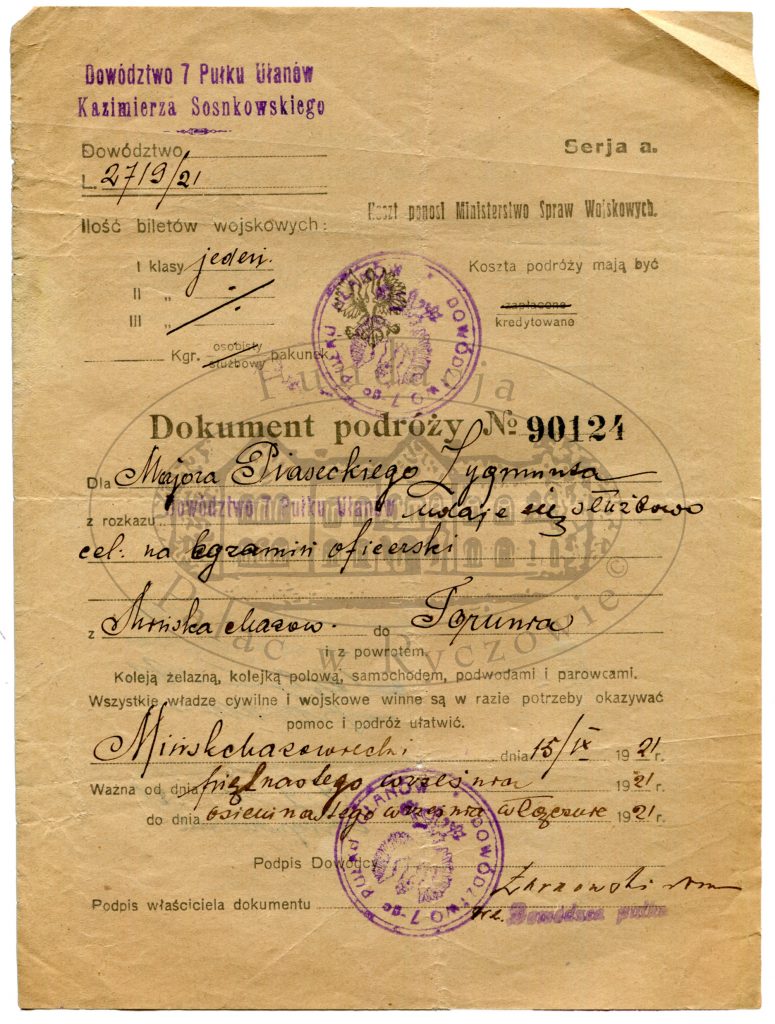 Dowództwo 7 Pułku Ułanów
Kazimierza Sosnkowskiego
Dowództwo
L. 2719/21
Serja a.
Koszt ponosi Ministerstwo Spraw Wojskowych.
Ilość biletów wojskowych:
I klasy jeden.
II „
III „
Koszta podróży mają być
zapłacone
kredytowane
Kgr. osobisty
służbowy pakunek
DOWÓDZTWO 7-go PUŁKU UŁANÓW
Fundacja
Dokument podróży № 90124
Dla Majora Piaseckiego Zygmunta
z rozkazu Dowództwo 7 Pułku Ułanów udaje się służbowo
cel: na egzamin oficerski
z Mińska Mazow. do Torunia
Pałac w Ryczowie ©
i z powrotem.
Koleją żelazną, kolejką polową, samochodem, podwodami i parowcami.
Wszystkie władze cywilne i wojskowe winne są w razie potrzeby okazywać
pomoc i podróż ułatwić.
Mińsk Mazowiecki dnia 15/IX 1921 r.
Ważna od dnia piętnastego września 1921 r.
do dnia osiemnastego września włącznie 1921 r.
DOWÓDZTWO 7-go PUŁKU UŁANÓW
Podpis Dowódcy
Podpis właściciela dokumentu
Dowódca pułku